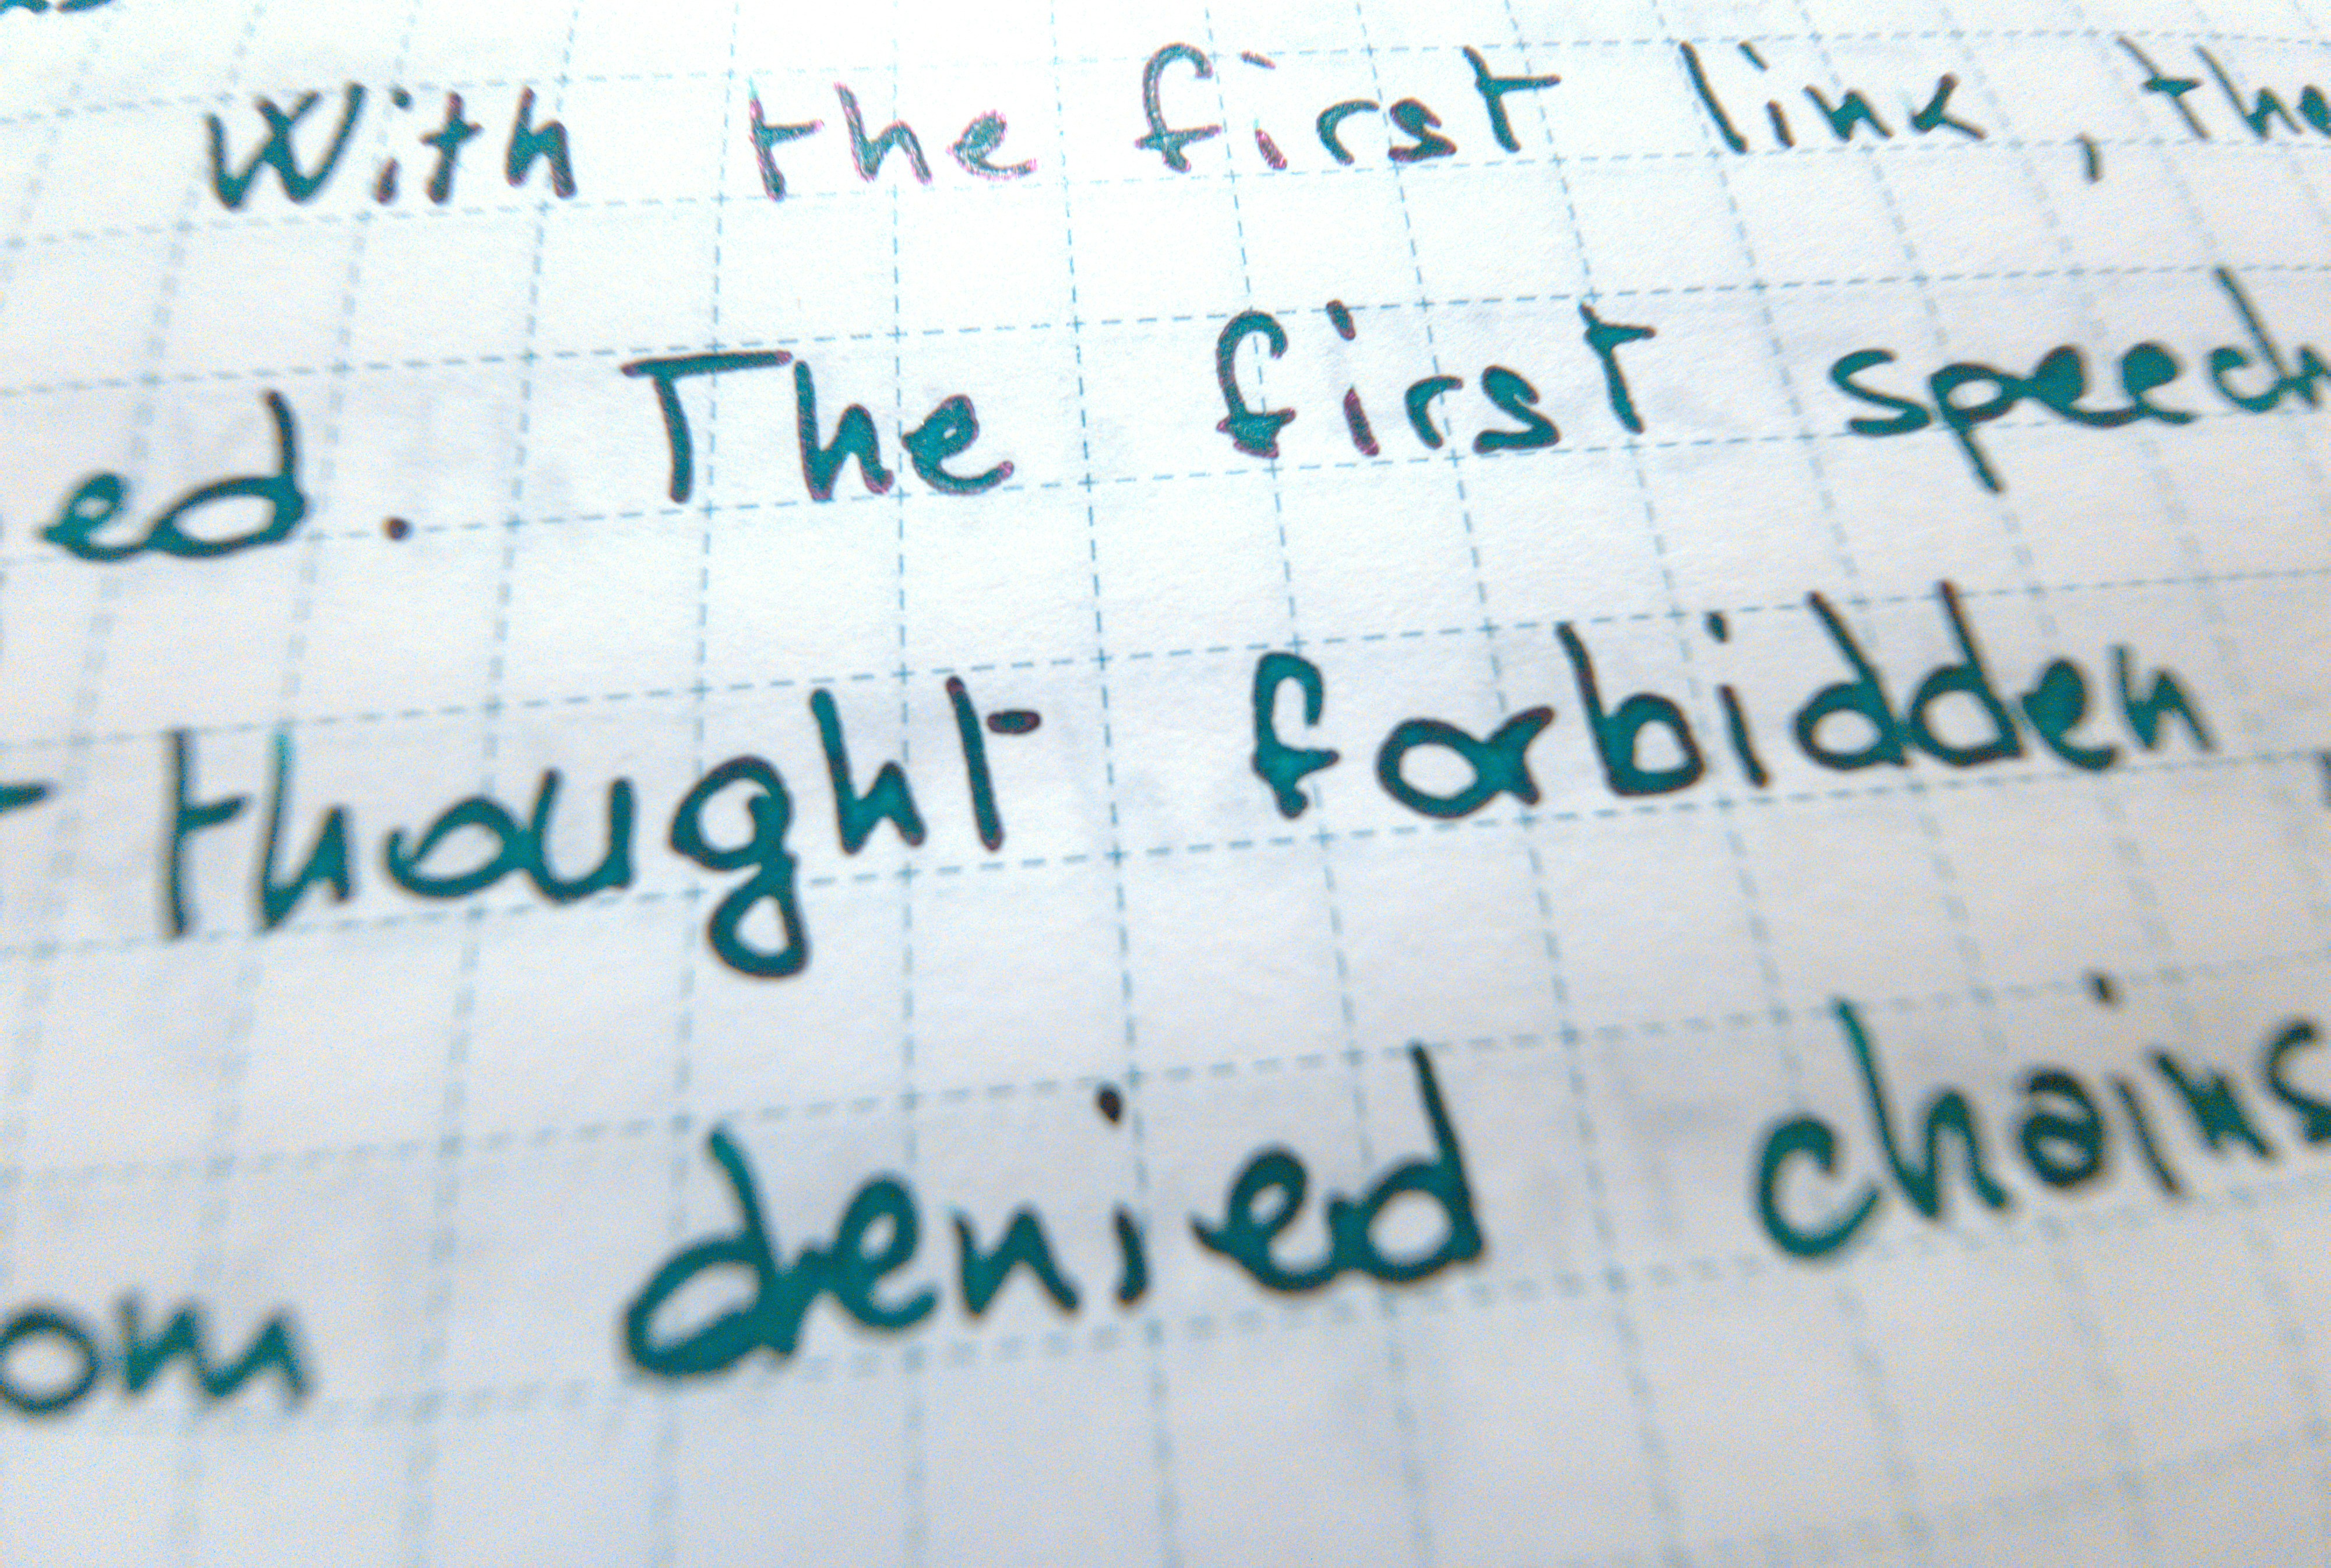 With the first link, the
ed. The first speech
thought forbidden
om denied chains